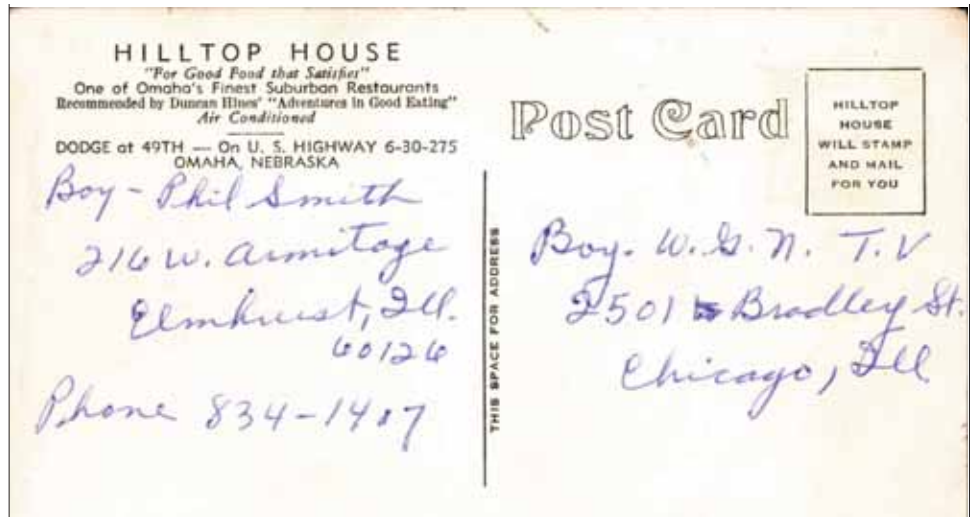 HILLTOP HOUSE
"For Good Food that Satisfies"
One of Omaha's Finest Suburban Restaurants
Recommended by Duncan Hines' "Adventures in Good Eating"
Air Conditioned
DODGE at 49TH — On U. S. HIGHWAY 6-30-275
OMAHA, NEBRASKA
Boy - Phil Smith
216 W. Armitage
Elmhurst, Ill.
60126
Phone 834-1407
Post Card
HILLTOP
HOUSE
WILL STAMP
AND MAIL
FOR YOU
THIS SPACE FOR ADDRESS
Boy. W.G.N. T.V
2501 Bradley St.
Chicago, Ill